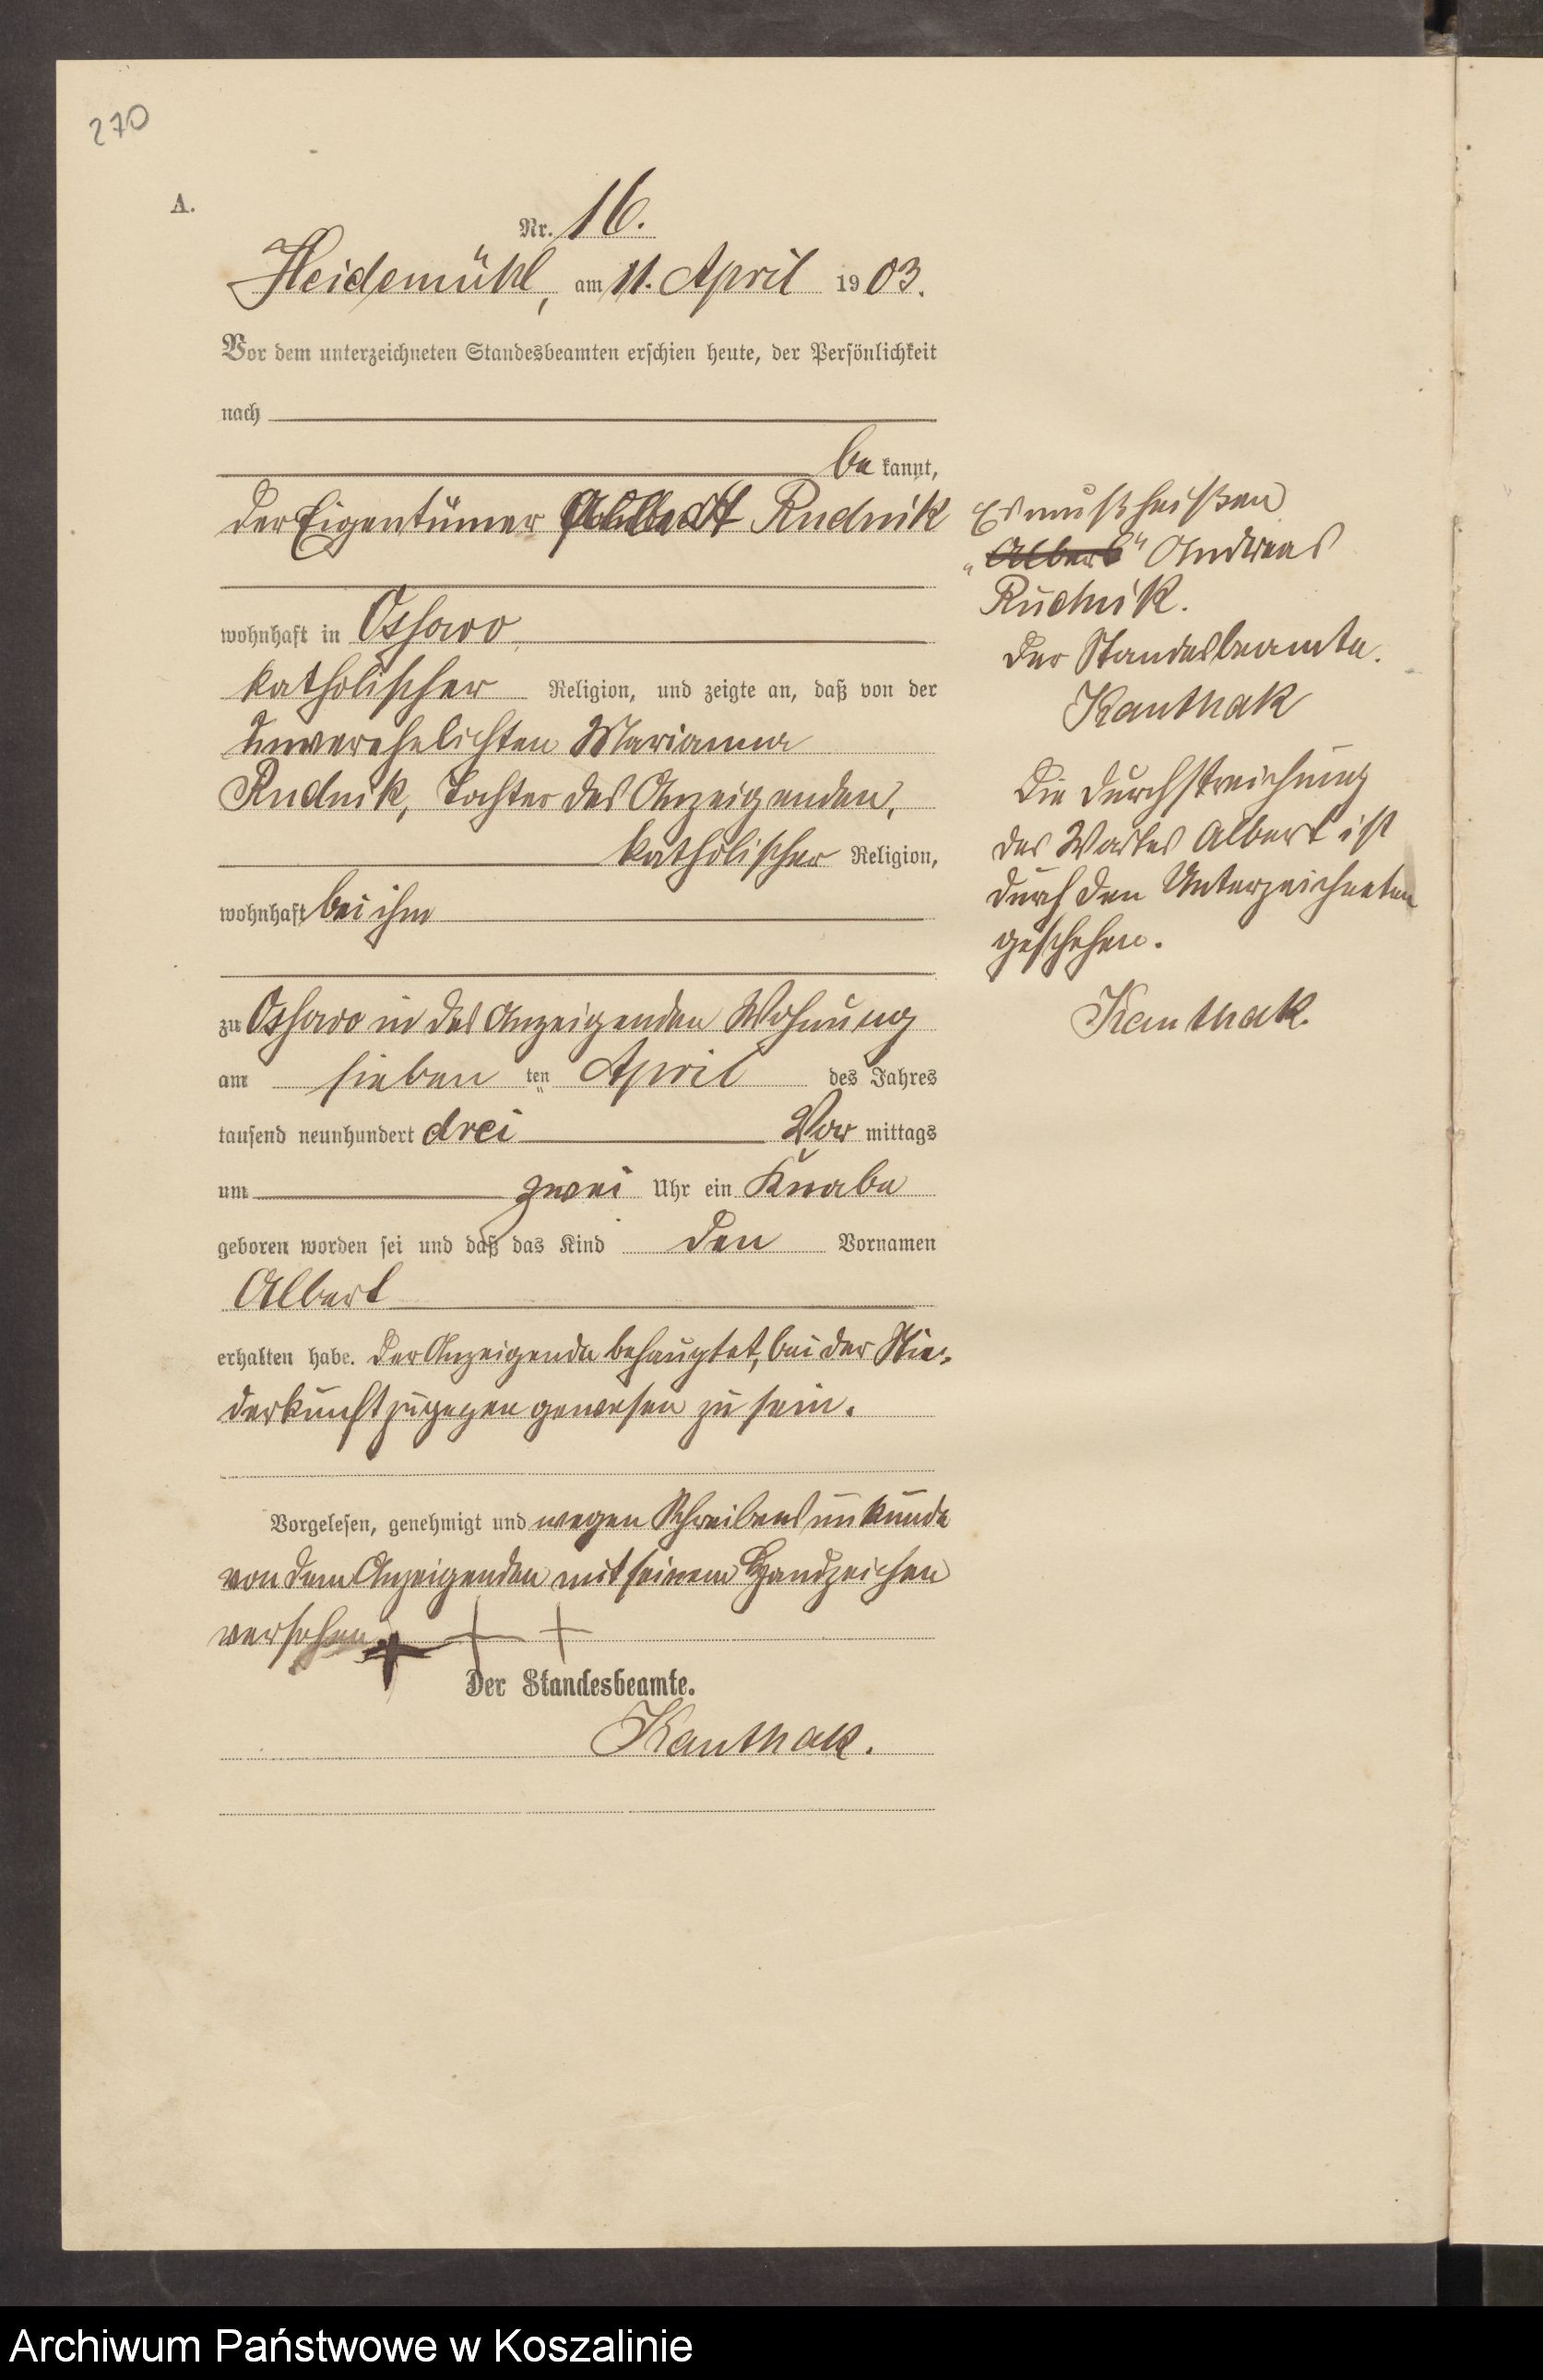 270
A.
Nr. 16.
Heidemühl, am 11. April 1903.
Vor dem unterzeichneten Standesbeamten erschien heute, der Persönlichkeit
nach
be kannt,
der Eigentümer Rudnik
wohnhaft in Ossowo
katholischer Religion, und zeigte an, daß von der
unverehelichten Marianna
Rudnik, Tochter des Anzeigenden,
katholischer Religion,
wohnhaft bei ihm
zu Ossowo in des Anzeigenden Wohnung
am sieben ten April des Jahres
tausend neunhundert drei Vor mittags
um zwei Uhr ein Knabe
geboren worden sei und daß das Kind den Vornamen
Albert
erhalten habe. Der Anzeigende behauptet, bei der Nie-
derkunft zugegen gewesen zu sein.
Vorgelesen, genehmigt und wegen Schreibensunkunde
von dem Anzeigenden mit seinem Handzeichen
versehen. + + +
Der Standesbeamte.
Kanthak.
Es muß heißen
„Albert“ Andreas
Rudnik.
Der Standesbeamte.
Kanthak
Die Durchstreichung
des Wortes Albert ist
durch den Unterzeichneten
geschehen.
Kanthak.
Archiwum Państwowe w Koszalinie